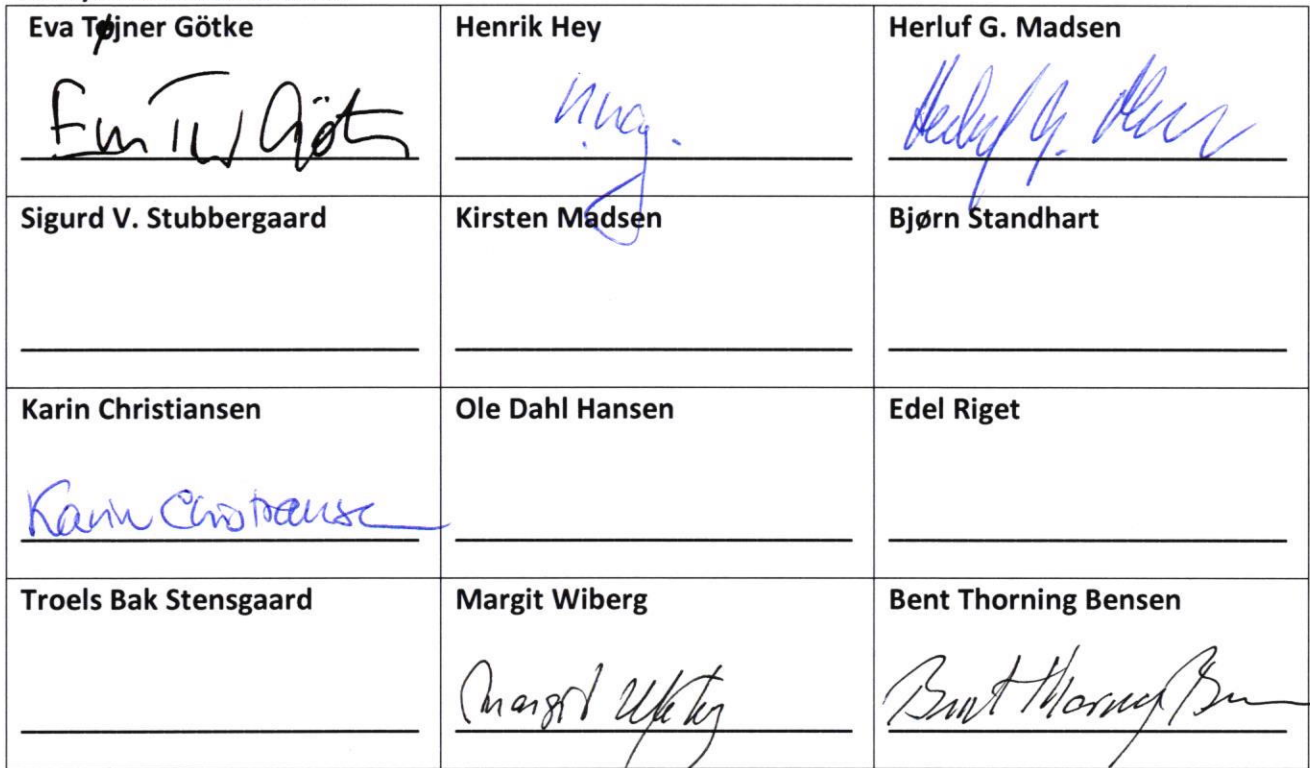 Eva Tøjner Götke
Henrik Hey
Herluf G. Madsen
Sigurd V. Stubbergaard
Kirsten Madsen
Bjørn Standhart
Karin Christiansen
Ole Dahl Hansen
Edel Riget
Karin Christiansen
Troels Bak Stensgaard
Margit Wiberg
Bent Thorning Bensen
Margit
Bent Thorning